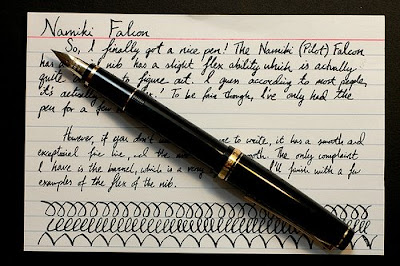 Namiki Falcon
So, I finally got a nice pen! The Namiki (Pilot) Falcon
has a nib has a slight flex ability which is actually
quite to figure out. I guess according to most people,
it's actually ! To be fair though, I've only had the
pen for a few
However, if you don't to write, it has a smooth and
exceptional fine line, and the smooth. The only complaint
I have is the barrel, which is a very I'll finish with a few
examples of the flex of the nib.